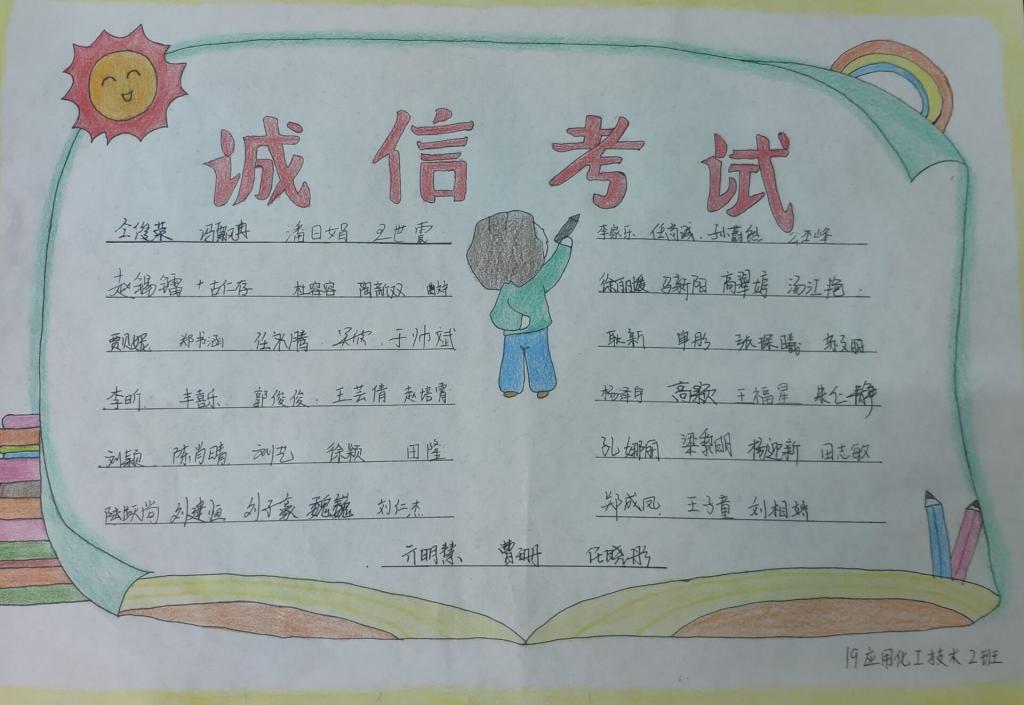 诚信考试
仝俊荣 潘日娟 王世震
赵锡镭 古仁存 杜容容 陶新双
贾妮 郑书涵 任永腾 吴欣 于帅斌
李昕 丰喜乐 郭俊俊 王芸倩 赵培霄
刘颖 陈肖晴 刘艺 徐颖 田隆
陆跃尚 刘建恒 刘子豪 魏巍 刘仁杰
李家乐 任尚诚 孙蔚然
徐丽媛 马新阳 高翠娟 汤江艳
耿新 单彤 张琛曦 苏文丽
杨泽宇 高颖 王福星 朱仁静
孔娜丽 梁梨明 杨迎新 田志敏
郑成凤 王子童 刘相娇
亓明慧 曹珊 任晓彤
19应用化工技术2班